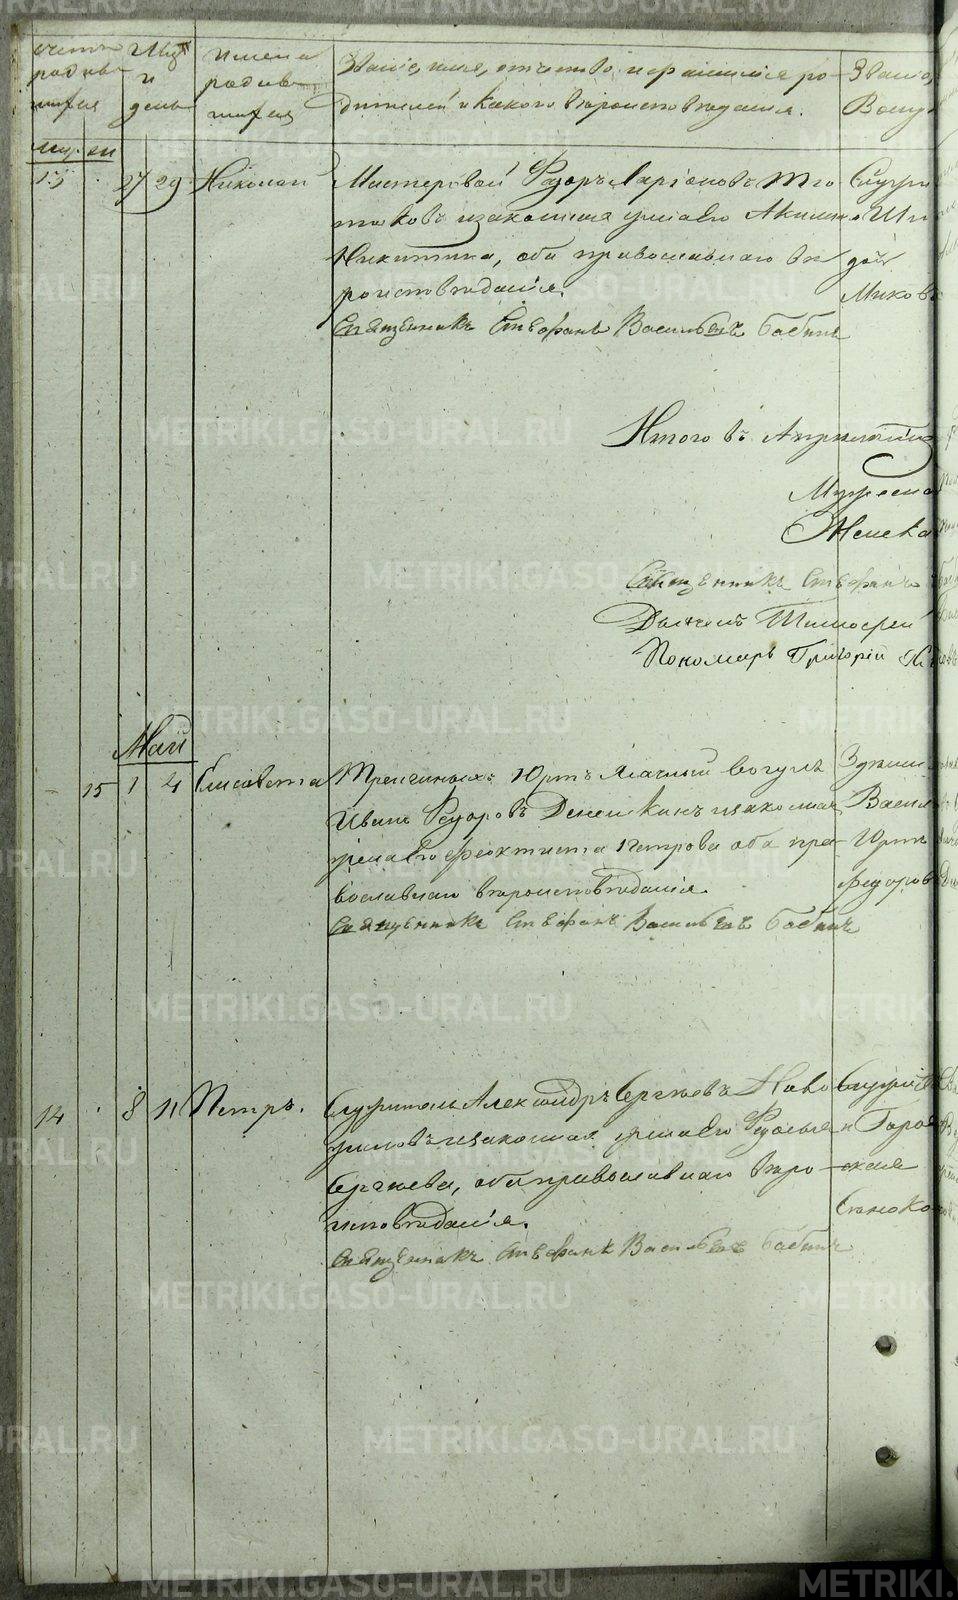 METRIKI.GASO-URAL.RU
счетъ родив-шихся
Мцъ и день
имена родив-шихся
Званіе, имя, отчество и фамилія ро-
дителей и какого вѣроисповѣданія.
Званіе,
муж жен
13 27 29 Николай
Мастеровой Федоръ Ларіоновъ
и законная жена его Акилина
Никитина, оба православнаго вѣ
роисповѣданія.
Священникъ Стефанъ Васильевъ Бабинъ
Итого въ Апрѣлѣ
Мужеска
Женска
Священникъ Стефанъ
Дьячекъ Тимофей
Пономарь Григорій
Май
15 1 4 Елисавета
Юртъ Ясачный вогулъ
Иванъ Федоровъ Денежкинъ и законная
жена его Феоктиста Петрова оба пра-
вославнаго вѣроисповѣданія.
Священникъ Стефанъ Васильевъ Бабинъ
Васил
Юртъ
Федоров
14 8 11 Петръ.
Служитель Александръ Сергѣевъ
и законная жена его Федосья
Сергѣева, оба православнаго вѣро-
исповѣданія.
Священникъ Стефанъ Васильевъ Бабинъ